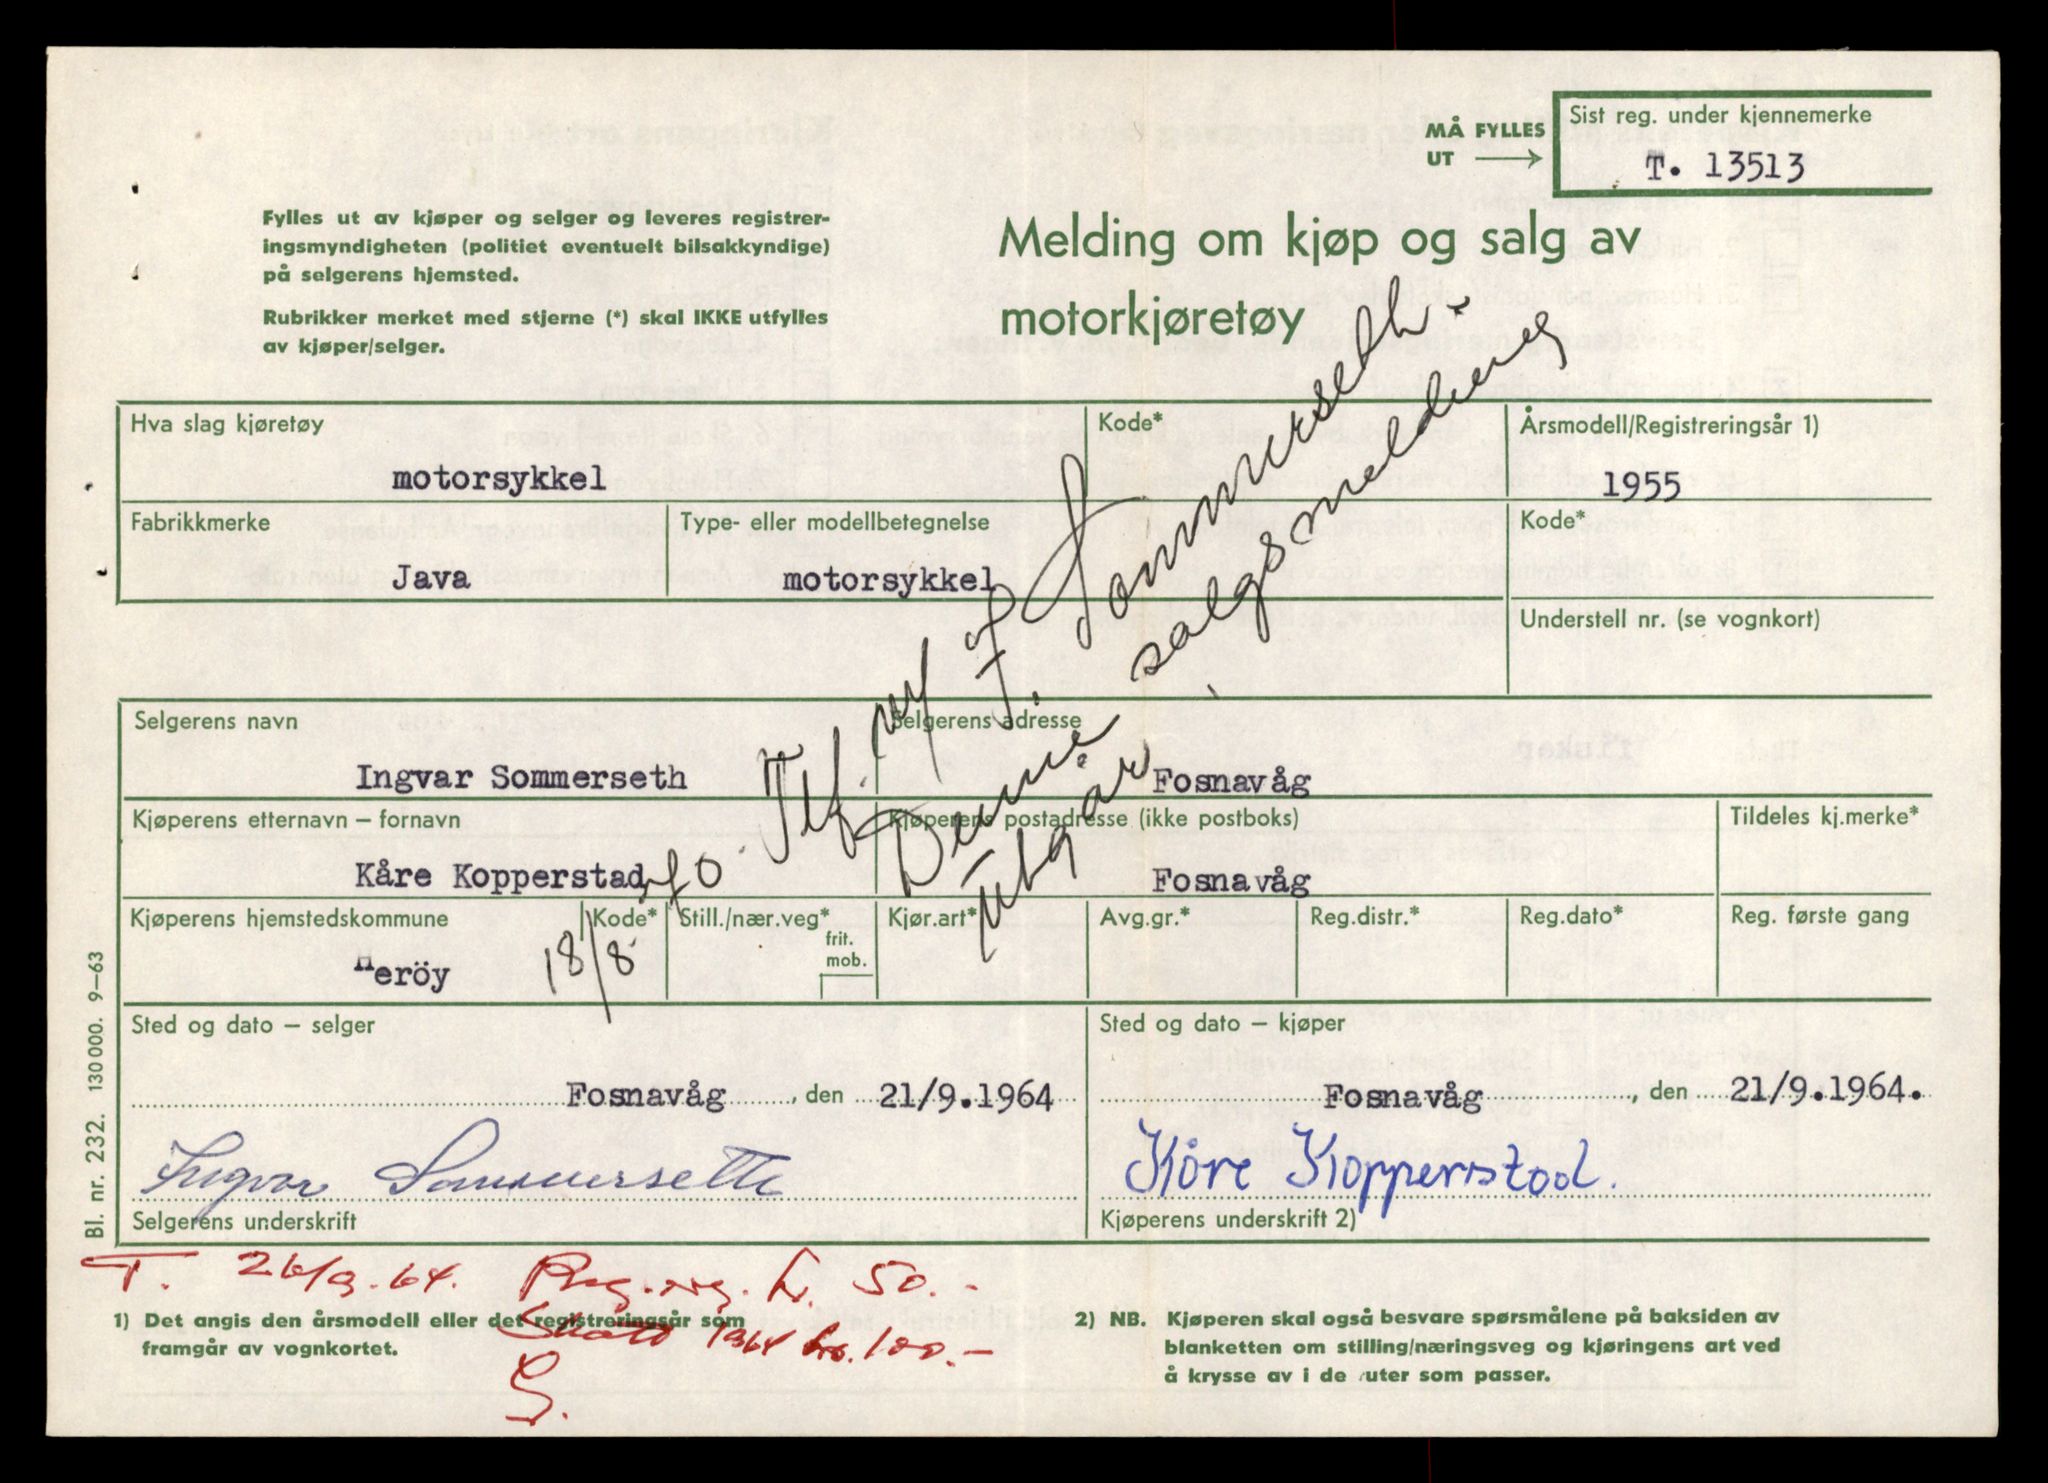 MÅ FYLLES
UT
Sist reg. under kjennemerke
T. 13513
Fylles ut av kjøper og selger og leveres registrer-
ingsmyndigheten (politiet eventuelt bilsakkyndige)
på selgerens hjemsted.
Rubrikker merket med stjerne (*) skal IKKE utfylles
av kjøper/selger.
Melding om kjøp og salg av
motorkjøretøy
Hva slag kjøretøy
Kode*
Årsmodell/Registreringsår 1)
motorsykkel
1955
Fabrikkmerke
Type- eller modellbetegnelse
Kode*
Java
motorsykkel
Understell nr. (se vognkort)
Selgerens navn
Selgerens adresse
Ingvar Sommerseth
Fosnavåg
Kjøperens etternavn – fornavn
Kjøperens postadresse (ikke postboks)
Tildeles kj.merke*
Kåre Kopperstad
Fosnavåg
Kjøperens hjemstedskommune
Kode*
Still./nær.veg*
frit.
mob.
Kjør.art*
Avg.gr.*
Reg.distr.*
Reg.dato*
Reg. første gang
Heröy
18/8
Tlf. J. Sommerseth.
Denne salgsmelding
utgår
Sted og dato – selger
Sted og dato – kjøper
Fosnavåg, den 21/9.1964
Fosnavåg, den 21/9.1964.
Ingvar Sommerseth
Kåre Kopperstad.
Selgerens underskrift
Kjøperens underskrift 2)
Bl. nr. 232. 130 000. 9–63
T. 26/9.64. Reg.avg. kr. 50.-
Skatt 1964 kr. 100.-
S.
1) Det angis den årsmodell eller det registreringsår som
framgår av vognkortet.
2) NB. Kjøperen skal også besvare spørsmålene på baksiden av
blanketten om stilling/næringsveg og kjøringens art ved
å krysse av i de ruter som passer.